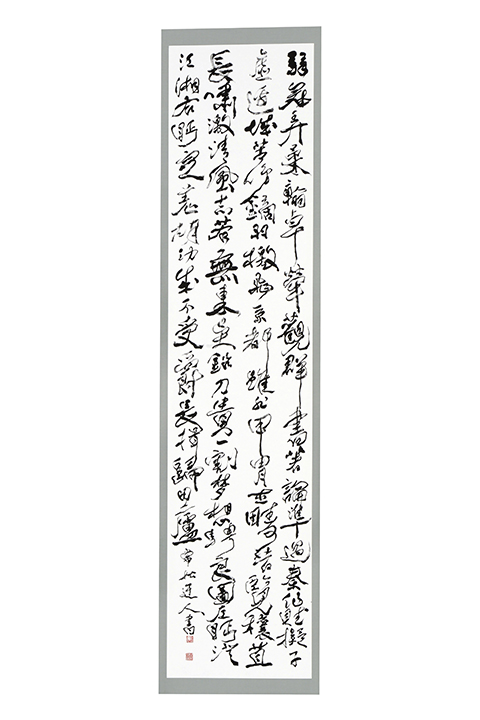 弱冠弄柔翰卓犖觀群書著論準過秦作賦擬子
虛邊城苦鳴鏑羽檄飛京都雖非甲冑士疇昔覽穰苴
長嘯激清風志若無東吳鉛刀貴一割梦想騁良圖左眄澄
江湘右盻定羌胡功成不受爵長揖歸田廬 道人書